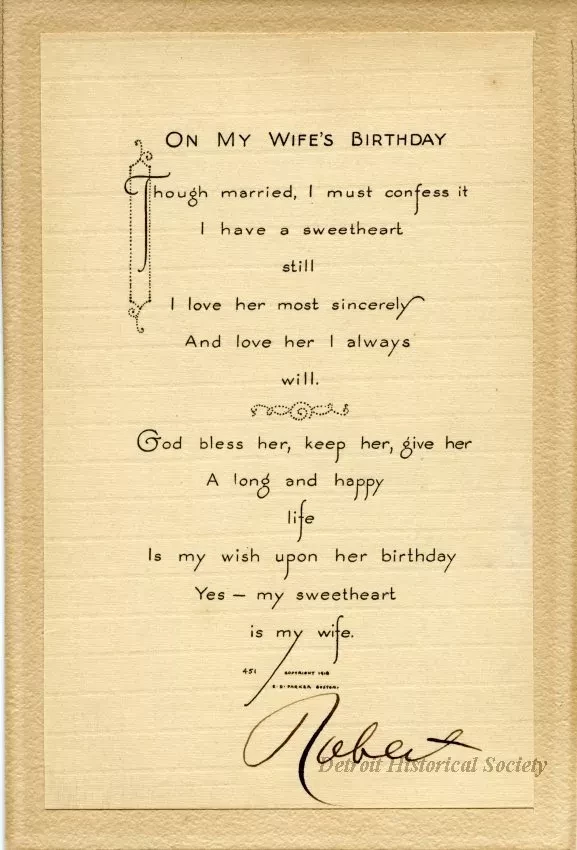 On My Wife's Birthday
Though married, I must confess it
I have a sweetheart
still
I love her most sincerely
And love her I always
will.
God bless her, keep her, give her
A long and happy
life
Is my wish upon her birthday
Yes — my sweetheart
is my wife.
451 COPYRIGHT 1918
E. D. PARKER BOSTON.
Robert
Detroit Historical Society